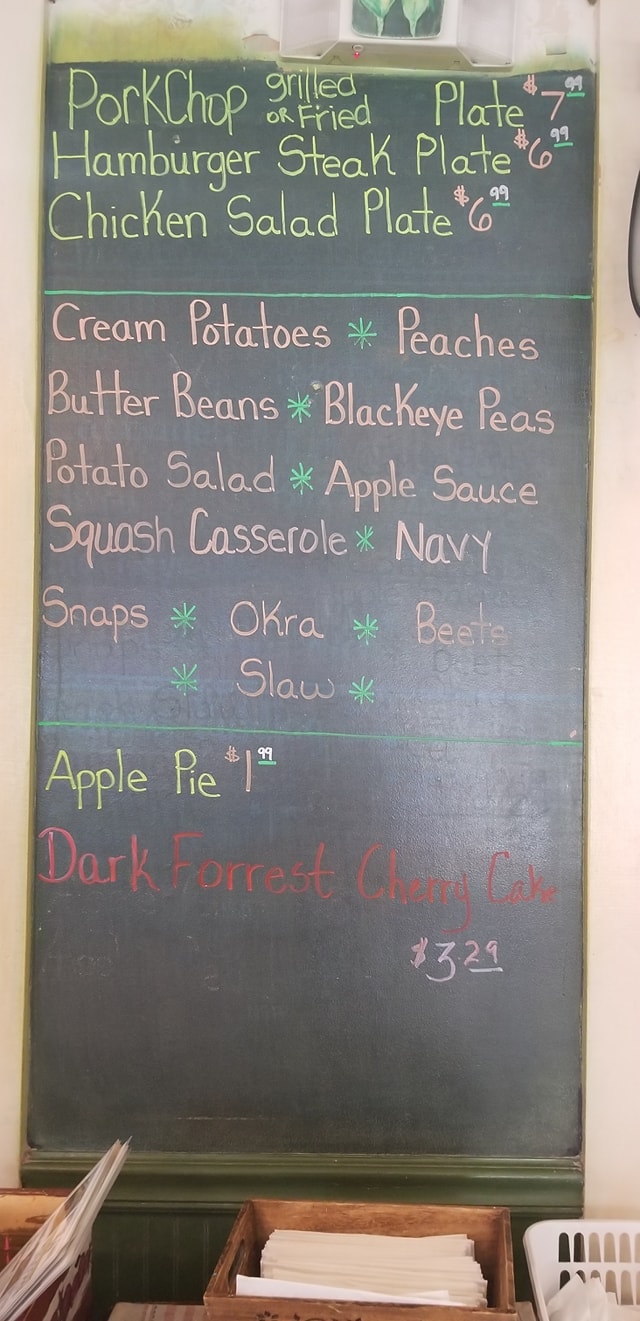 PorkChop grilled or Fried Plate $7.99
Hamburger Steak Plate $6.99
Chicken Salad Plate $6.99
Cream Potatoes * Peaches
Butter Beans * Blackeye Peas
Potato Salad * Apple Sauce
Squash Casserole * Navy
Snaps * Okra * Beets
* Slaw *
Apple Pie $1.99
Dark Forrest Cherry Cake
$3.29